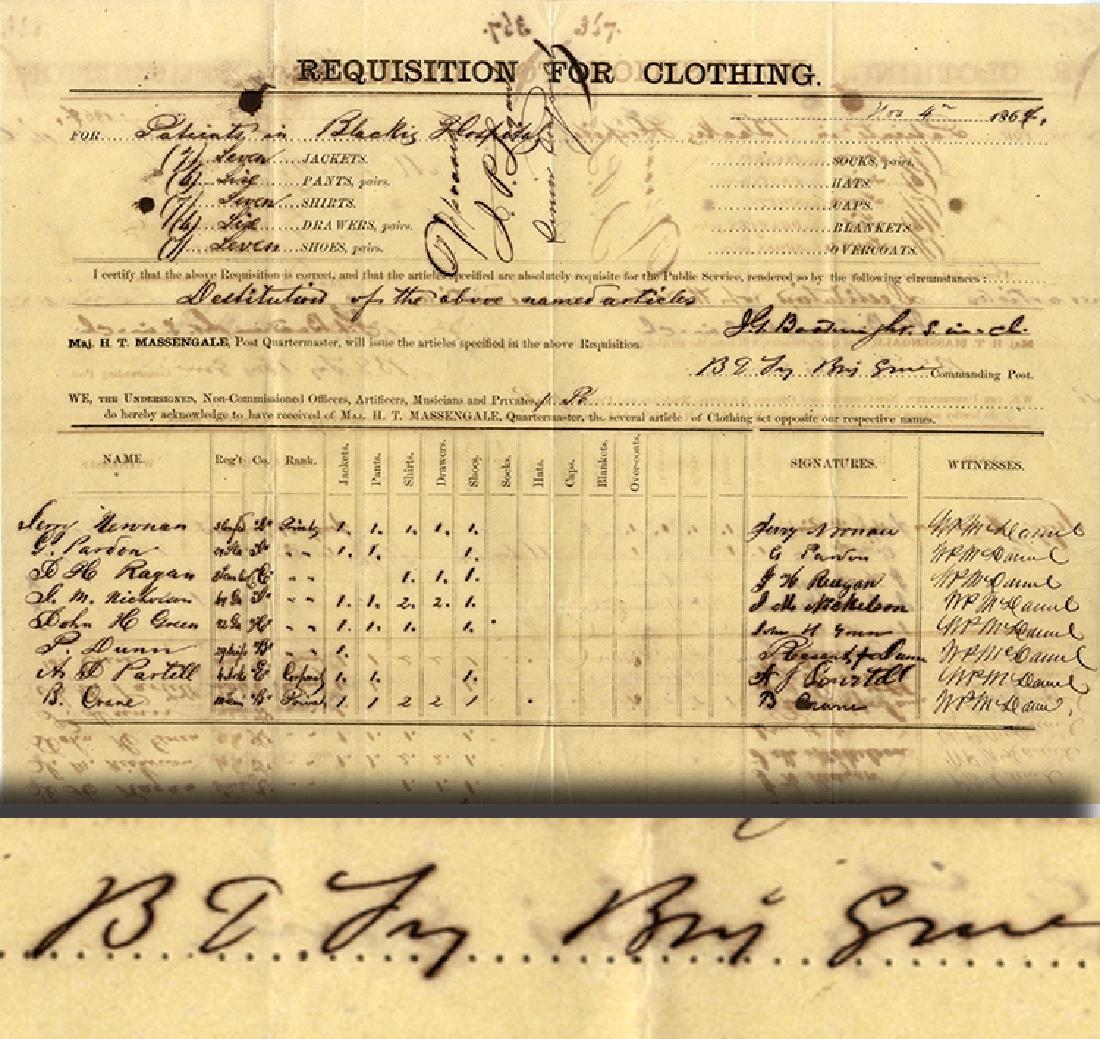 REQUISITION FOR CLOTHING.
Nov 4th 1864.
FOR Patients in Blackie Hospital
(7) Seven JACKETS. SOCKS, pairs.
(6) Six PANTS, pairs. HATS.
(7) Seven SHIRTS. CAPS.
(6) Six DRAWERS, pairs. BLANKETS.
(7) Seven SHOES, pairs. OVERCOATS.
I certify that the above Requisition is correct, and that the articles specified are absolutely requisite for the Public Service, rendered so by the following circumstances:
Destitution of the above named articles
S. in ch.
Maj. H. T. MASSENGALE, Post Quartermaster, will issue the articles specified in the above Requisition.
B D Fry Brig Genl Commanding Post.
WE, THE UNDERSIGNED, Non-Commissioned Officers, Artificers, Musicians and Privates,
do hereby acknowledge to have received of MAJ. H. T. MASSENGALE, Quartermaster, the several article of Clothing set opposite our respective names.
NAME. Reg't Co. Rank. Jackets. Pants. Shirts. Drawers. Shoes. Socks. Hats. Caps. Blankets. Over-coats. SIGNATURES. WITNESSES.
Jerry Newnan Private 1. 1. 1. 1. 1. Jerry W P McDaniel
G. Pardon " " 1. 1. 1. G Pardon W P McDaniel
H Ragan " " 1. 1. 1. H Reagan W P McDaniel
J. M. Nicholson " " 1. 1. 2. 2. 1. J M Nickelson W P McDaniel
John H Green " " 1. 1. 1. 1. 1. John H Green W P McDaniel
P. Dunn " " 1. Dunn W P McDaniel
A D Partell Corporal 1. 1. 1. A J W P McDaniel
B. Crane Private 1. 1 2 2 1 B Crane W P McDaniel
B D Fry Brig Genl